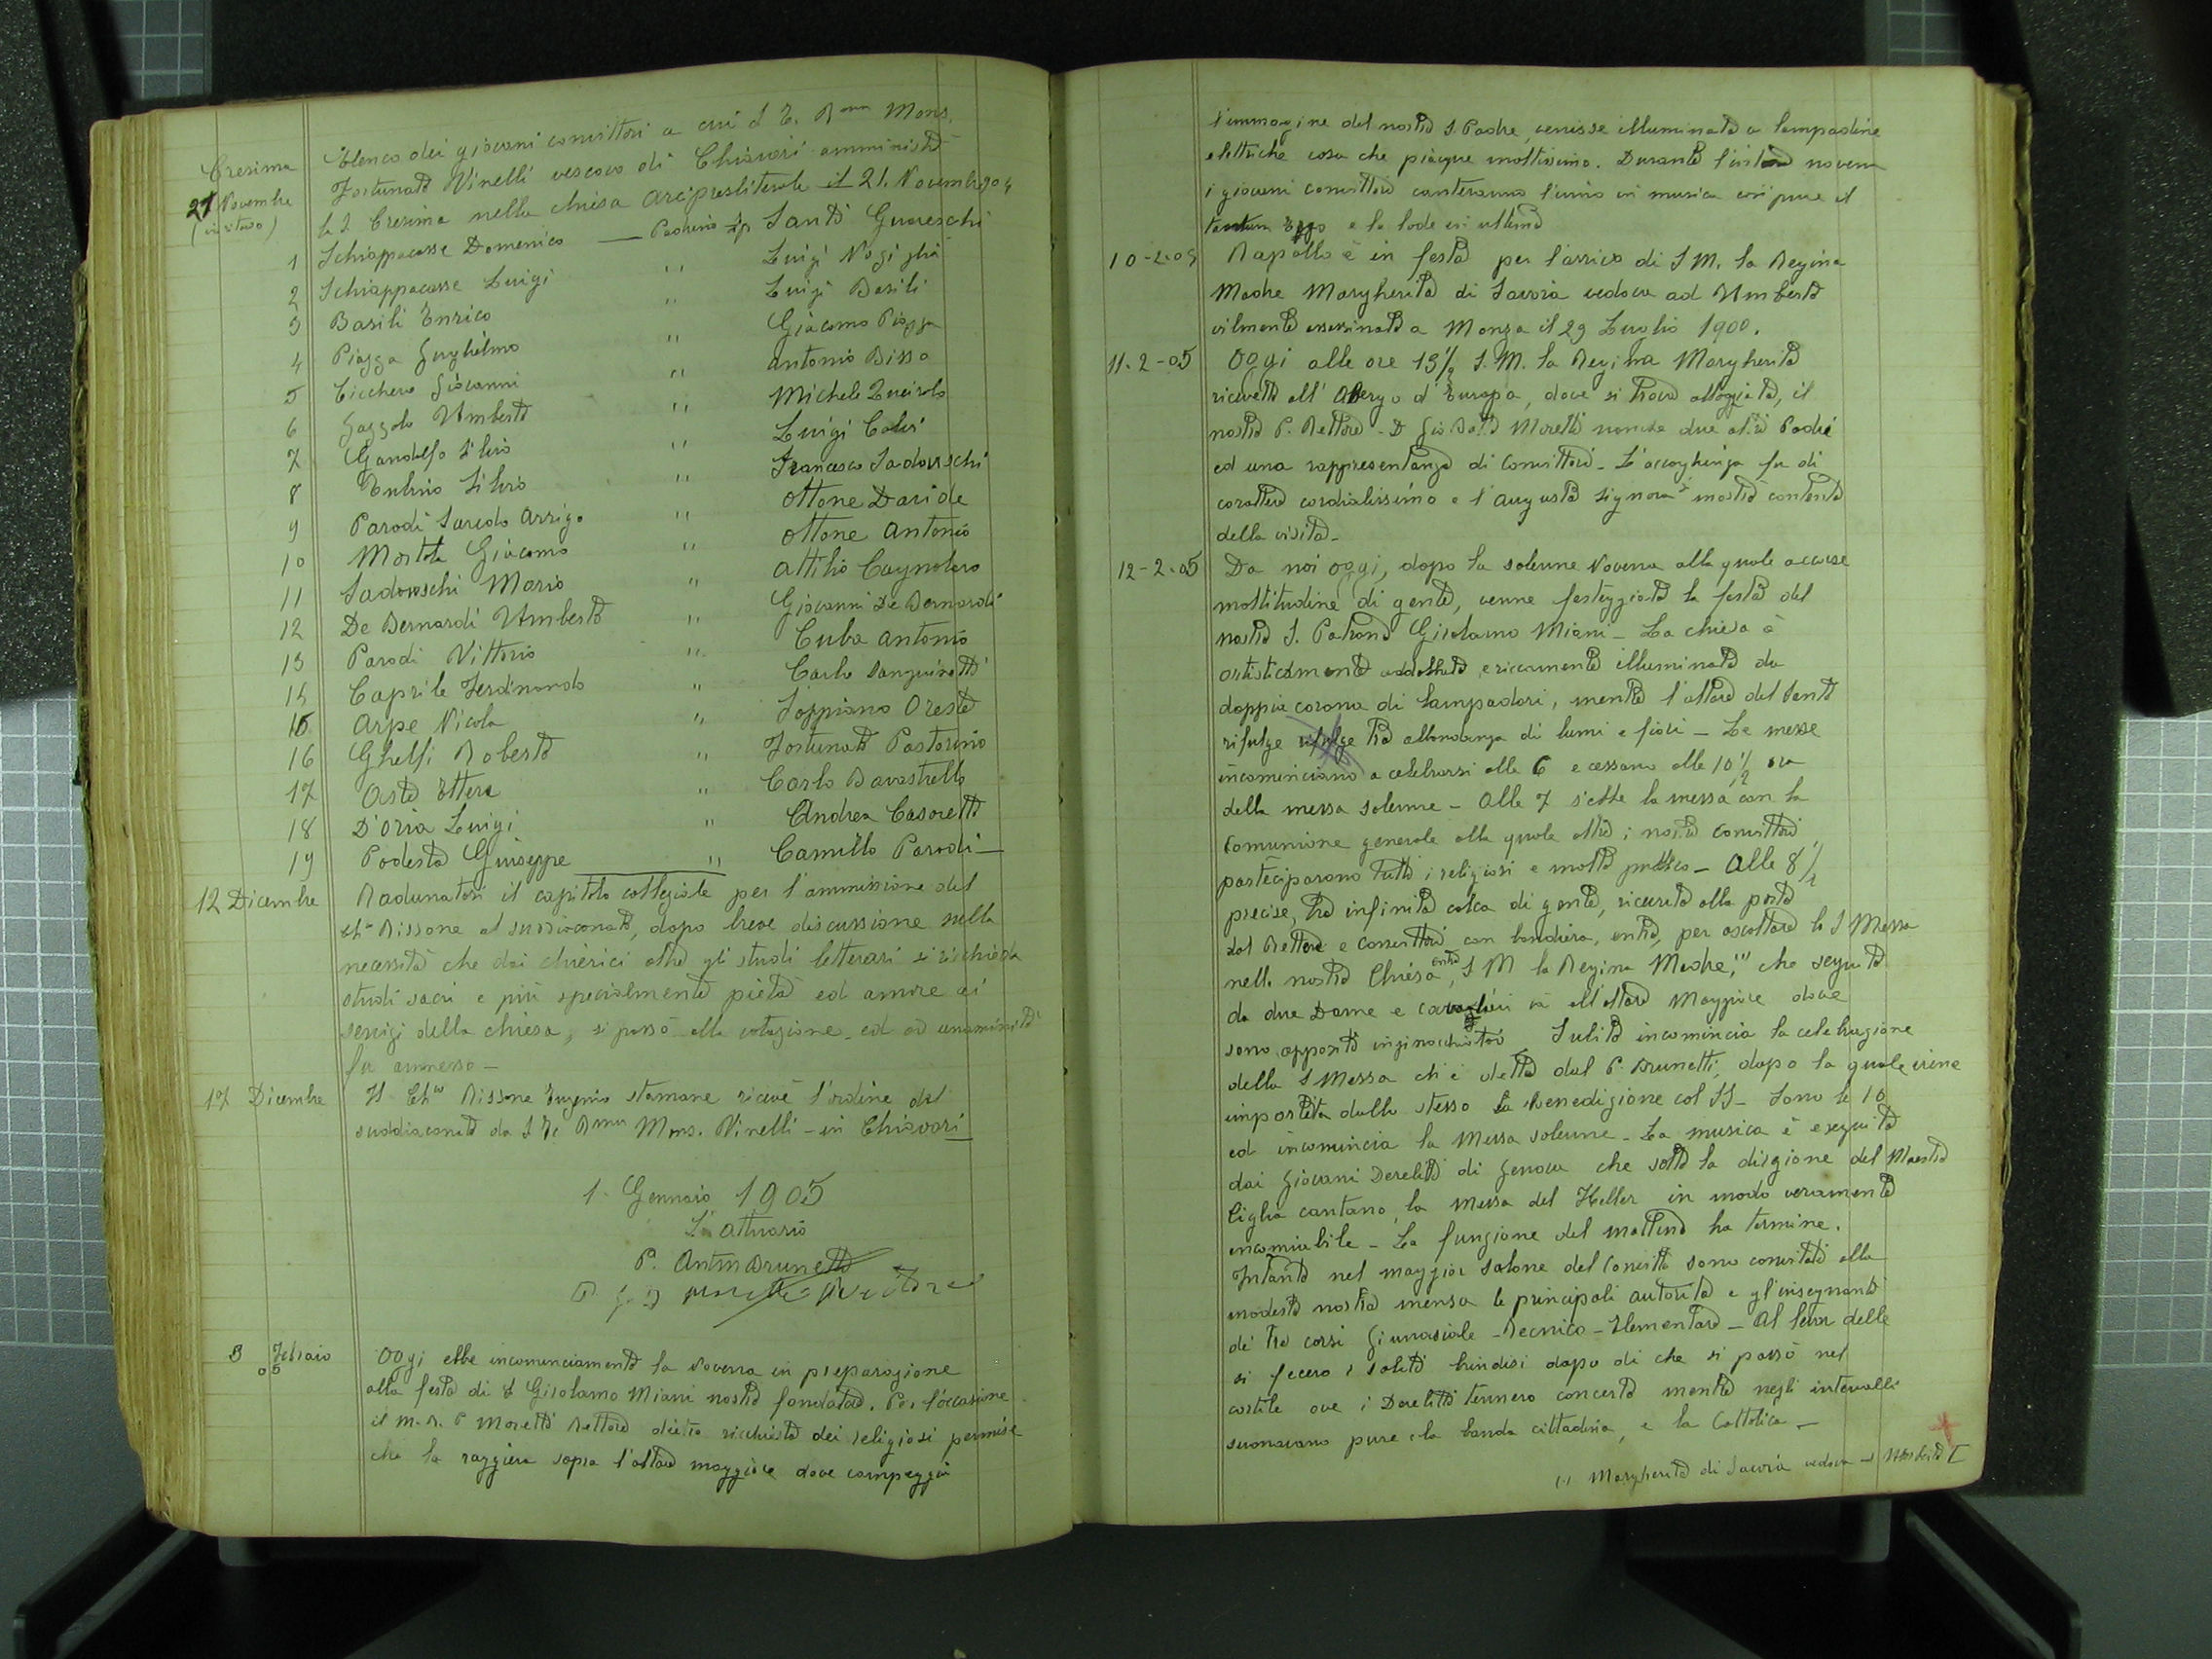 Cresima
21 Novembre
(in ritardo)
Elenco dei giovani convittori a cui S E. Rma Mons.
Fortunato Vinelli vescovo di Chiavari amministrò
la S. Cresima nella chiesa arcipresbiterale il 21. Novembre 904
1 Schiappacasse Domenico — Padrino Santi Guareschi
2 Schiappacasse Luigi " Luigi
3 Basili Enrico " Luigi Basili
4 Piazza Guglielmo " Giacomo Piazza
5 Cicchero Giovanni " Antonio Bisso
6 Gazzolo Umberto " Michele Queirolo
7 Gandolfo Silvio " Luigi
8 Silvio " Francesco Sadowschi
9 Parodi Arrigo " Ottone Davide
10 Mortola Giacomo " Ottone Antonio
11 Sadowschi Mario " Attilio Cagnolaro
12 De Bernardi Umberto " Giovanni De Bernardi
13 Parodi Vittorio " Cuba Antonio
14 Caprile Ferdinando " Carlo Sanguineti
15 Arpe Nicola " Soppiano Oreste
16 Ghelfi Roberto " Fortunato Pastorino
17 Aste Ettore " Carlo Bavastrello
18 D'Oria Luigi " Andrea Casoretti
19 Podestà Giuseppe " Camillo Parodi—
12 Dicembre Radunatosi il capitolo collegiale per l'ammissione del
Ch.o Rissone al suddiaconato, dopo breve discussione nella
necessità che dai chierici oltre gli studi letterari si richieda
studi sacri e più specialmente pietà ed amore ai
servizi della chiesa, si passò alla votazione ed ad unanimità
fu ammesso —
17 Dicembre Il Ch.co Rissone Eugenio stamane riceve l'ordine del
suddiaconato da S E. Rma Mons. Vinelli - in Chiavari
1. Gennaio 1905
L'attuario
P. Antn Brunetti
3 Febraio 05 Oggi ebbe incominciamento la Novena in preparazione
alla festa di S Girolamo Miani nostro fondatore. Per l'occasione
il M. R. P Moretti Rettore dietro richiesta dei religiosi permise
che la raggiera sopra l'altare maggiore dove campeggia
l'immagine del nostro S. Padre, venisse illuminato a lampadine
elettriche cosa che piacque moltissimo. Durante l'intera novena
i giovani convittori canteranno l'inno in musica così pure il
tantum Ergo e la lode in ultimo
10-2-05 Rapallo è in festa per l'arrivo di S M. la Regina
Madre Margherita di Savoia vedova ad Umberto
vilmente assassinato a Monza il 29 Luglio 1900.
11-2-05 Oggi alle ore 13½ S. M. la Regina Margherita
ricevette all' Albergo d'Europa, dove si trova alloggiata, il
nostro P. Rettore - D Gio Batta Moretti nonche due altri Padri
ed una rappresentanza di Convittori - L'accoglienza fu di
carattere cordialissimo e l'augusta Signora si mostrò contenta
della visita -
12-2-05 Da noi oggi, dopo la solenne Novena alla quale accorse
moltitudine di gente, venne festeggiata la festa del
nostro S. Patrono Girolamo Miani - La chiesa è
artisticamente addobbata e riccamente illuminata da
doppia corona di lampadari, mentre l'altare del Santo
rifulge rifulge tra abbondanza di lumi e fiori - Le messe
incominciano a celebrarsi alle 6 e cessano alle 10½ ora
della messa solenne - Alle 7 s'ebbe la messa con la
Comunione generale alla quale oltre i nostri Convittori
parteciparono tutti i religiosi e molto pubblico - Alle 8½
precise, tra infinita calca di gente, ricevuta alla porta
dal Rettore e Convittori con bandiera, entra, per ascoltare la S Messa
nella nostra Chiesa, entra S M la Regina Madre, (1) che seguita
da due Dame e cavalieri va all'altare Maggiore dove
sono appositi inginocchiatoi Subito incomincia la celebrazione
della S Messa ch'è detta dal P. Brunetti, dopo la quale viene
impartita dallo stesso la benedizione col SS - Sono le 10
ed incomincia la Messa solenne - La musica è eseguita
dai Giovani Derelitti di Genova che sotto la direzione del Maestro
Ciglia cantano la Messa del Heller in modo veramente
encomiabile - La funzione del mattino ha termine.
Intanto nel maggior Salone del Convitto sono convitati alla
modesta nostra mensa le principali autorità e gl'insegnanti
de' tre corsi Ginnasiale - Tecnico - Elementare - Al levar delle
si fecero i soliti brindisi dopo di che si passò nel
cortile ove i Derelitti tennero concerto mentre negli intervalli
suonavano pure la banda cittadina, e la Cattolica —
(1) Margherita di Savoia vedova ad Umberto I